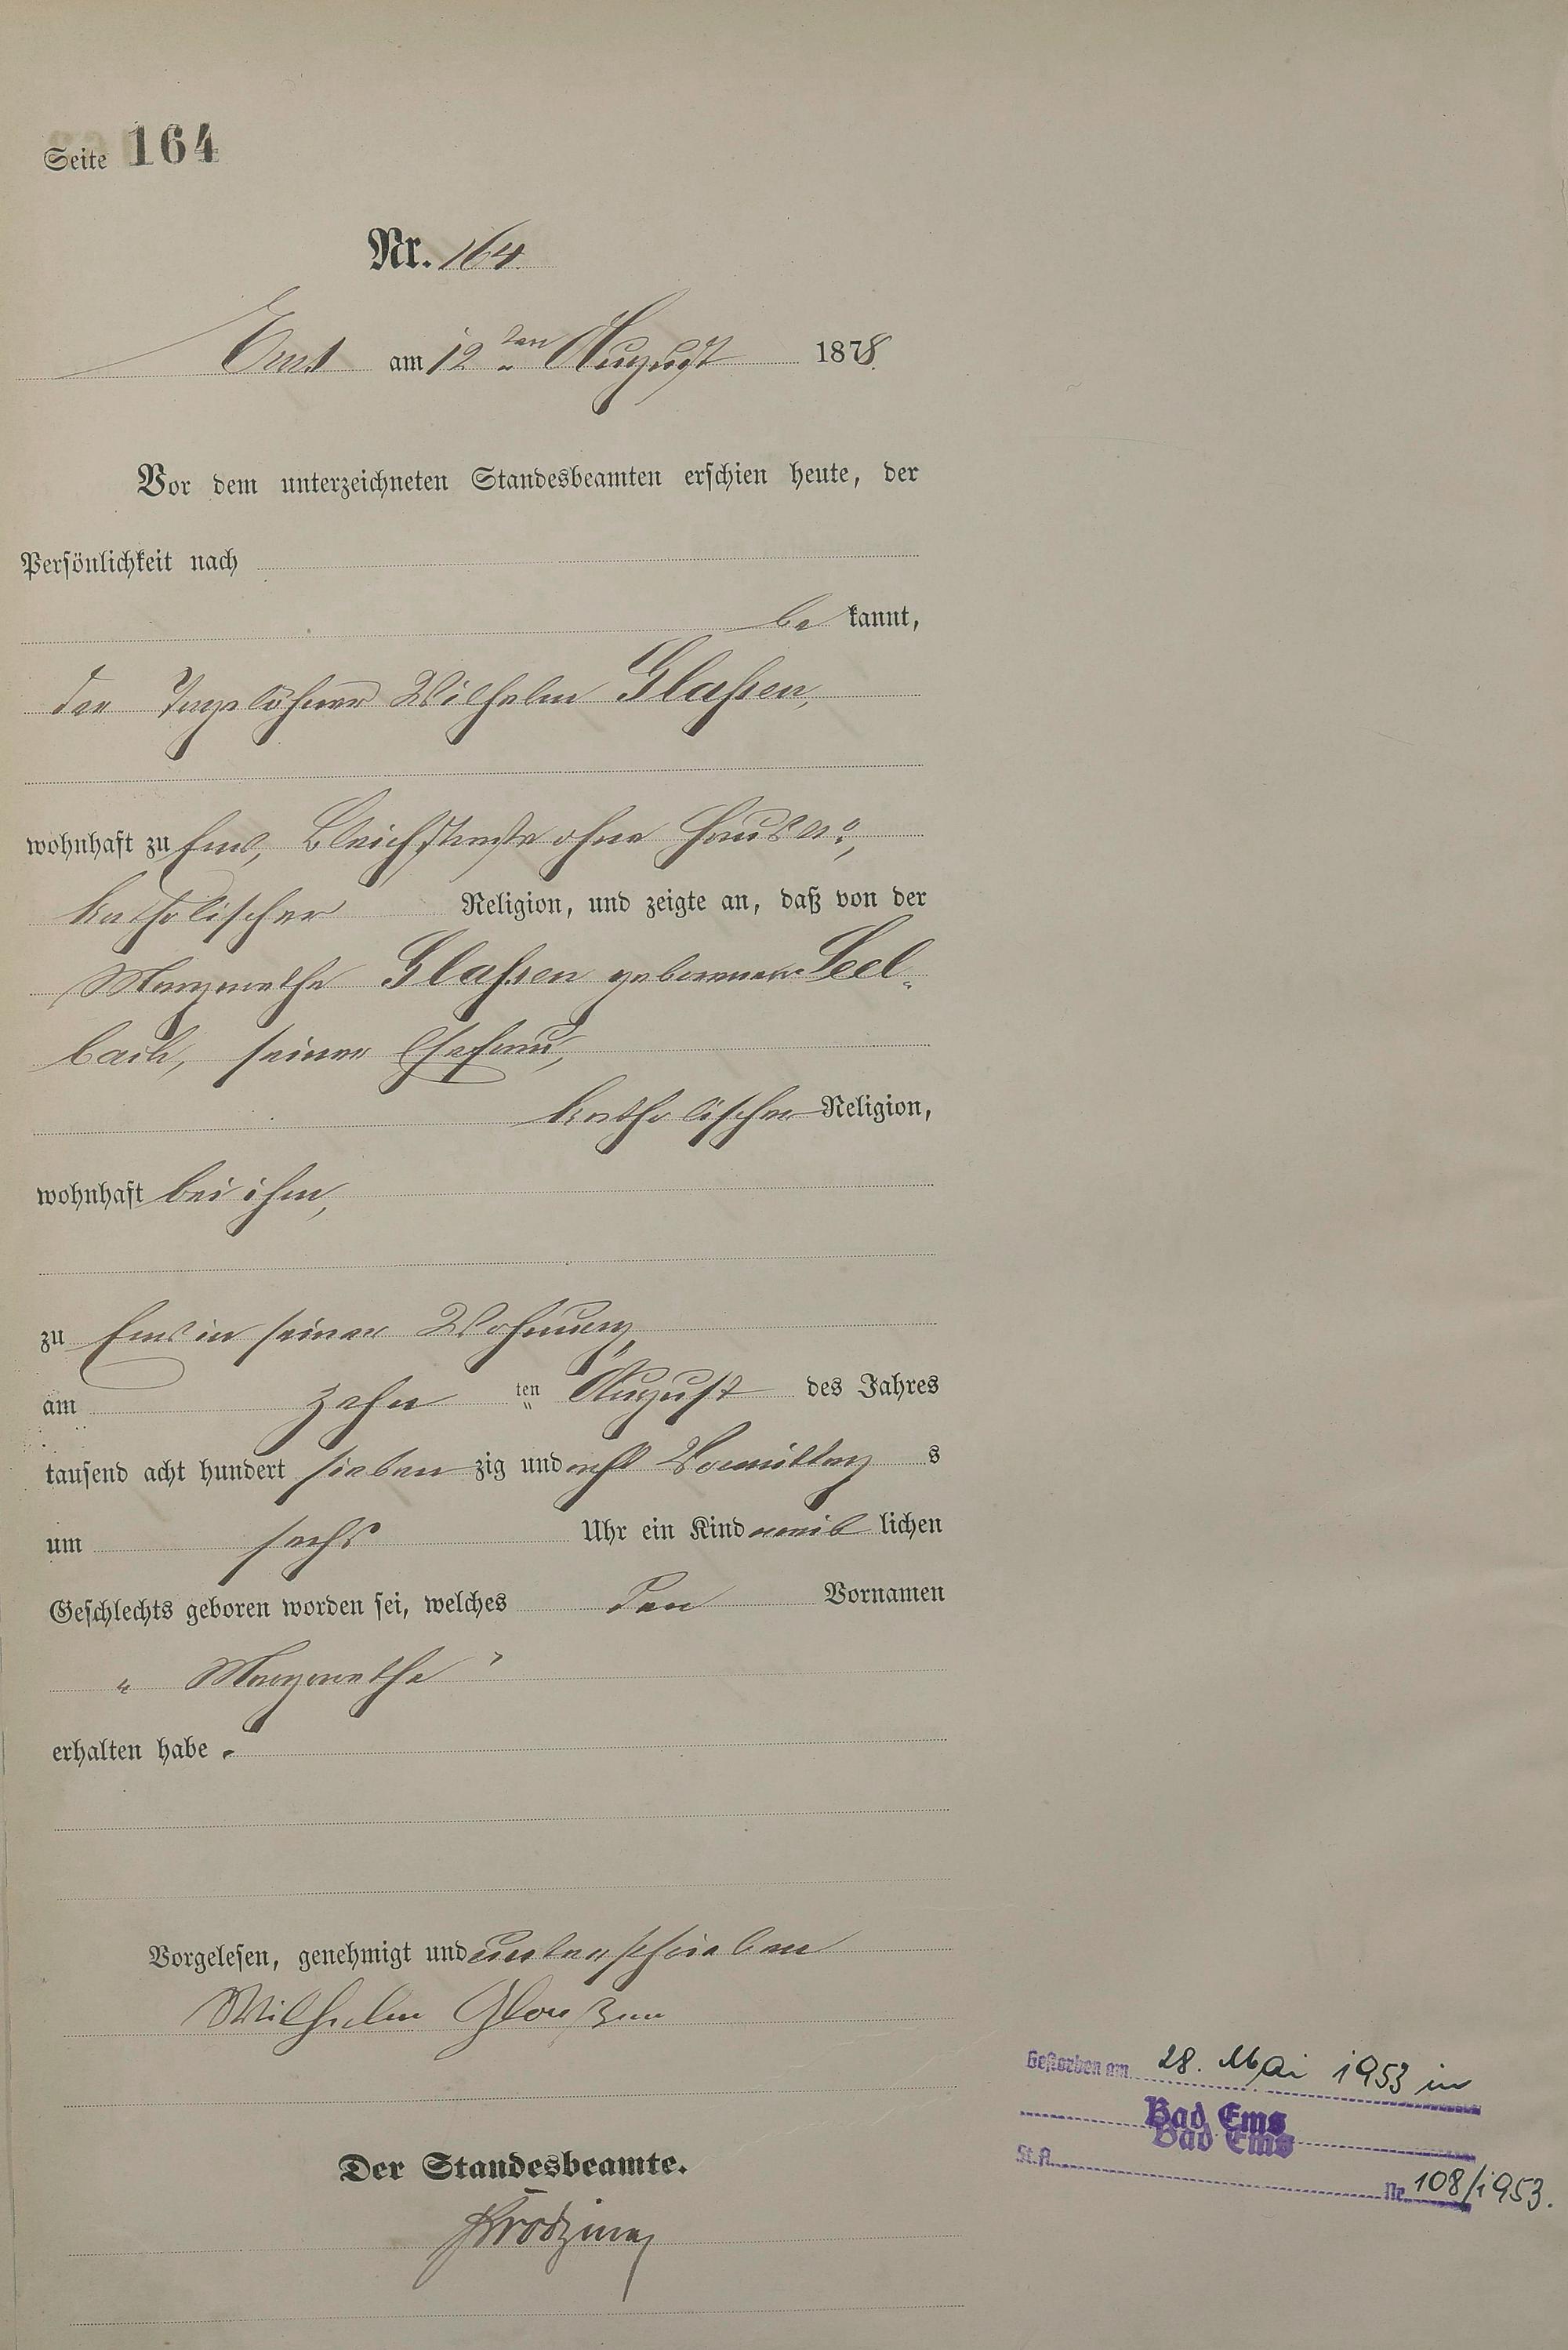 Seite 164
Nr. 164.
Ems am 12ten August 1878.
Vor dem unterzeichneten Standesbeamten erschien heute, der
Persönlichkeit nach
be kannt,
der Tagelöhner Wilhelm Glaßen,
wohnhaft zu Ems, Bleichstraße ohne Hausno,
katholischer Religion, und zeigte an, daß von der
Margarethe Glaßen geborenen Seel-
bach, seiner Ehefrau,
katholischer Religion,
wohnhaft bei ihm,
zu Ems in seiner Wohnung,
am zehn ten August des Jahres
tausend acht hundert sieben zig und acht Vormittag s
um sechs Uhr ein Kind weib lichen
Geschlechts geboren worden sei, welches den Vornamen
„ Margarethe "
erhalten habe.
Vorgelesen, genehmigt und unterschrieben
Wilhelm Glaußen
Der Standesbeamte.
Gestorben am 28. Mai 1953 in
Bad Ems
Bad Ems
St.A. Nr. 108/1953.